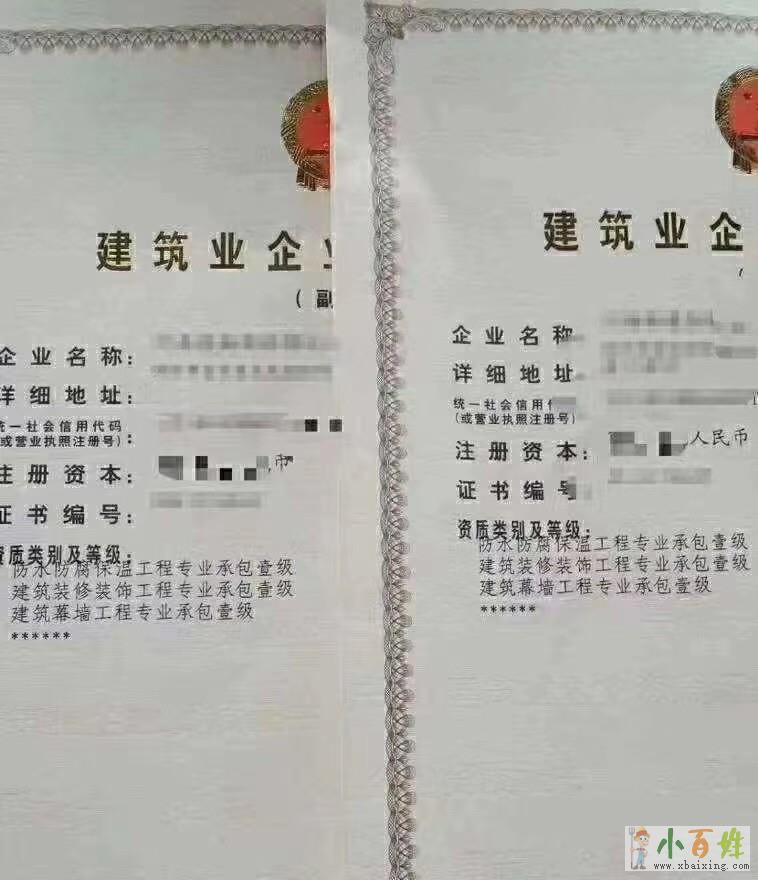 建筑业企业
（副
企业名称：
详细地址：
统一社会信用代码
(或营业执照注册号)：
注册资本：
币
证书编号：
资质类别及等级：
防水防腐保温工程专业承包壹级
建筑装修装饰工程专业承包壹级
建筑幕墙工程专业承包壹级
******
建筑业企
（
企业名称
详细地址
统一社会信用
(或营业执照注册号)
注册资本：人民币
证书编号
资质类别及等级：
防水防腐保温工程专业承包壹级
建筑装修装饰工程专业承包壹级
建筑幕墙工程专业承包壹级
******
小百姓
www.xbaixing.com